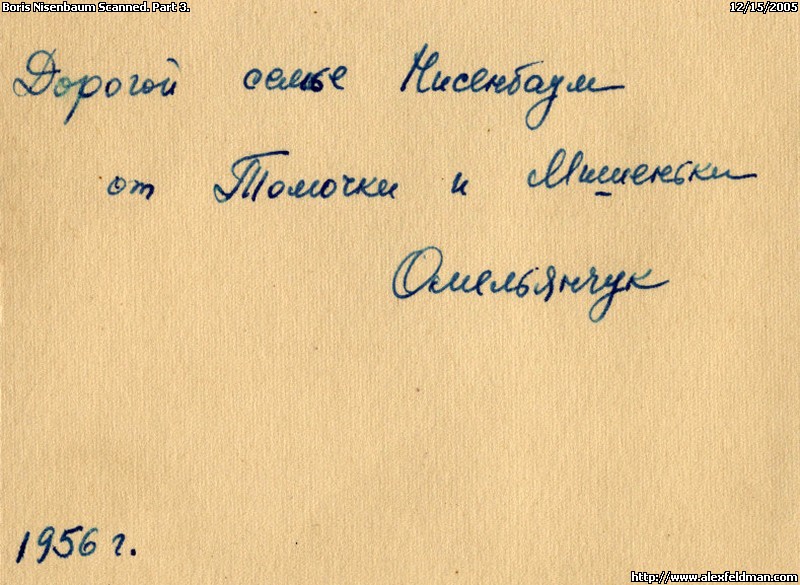 Boris Nisenbaum Scanned. Part 3. 12/15/2005
Дорогой семье Нисенбаум
от Томочки и Мишеньки
Омельянчук
1956 г.
http://www.alexfeldman.com